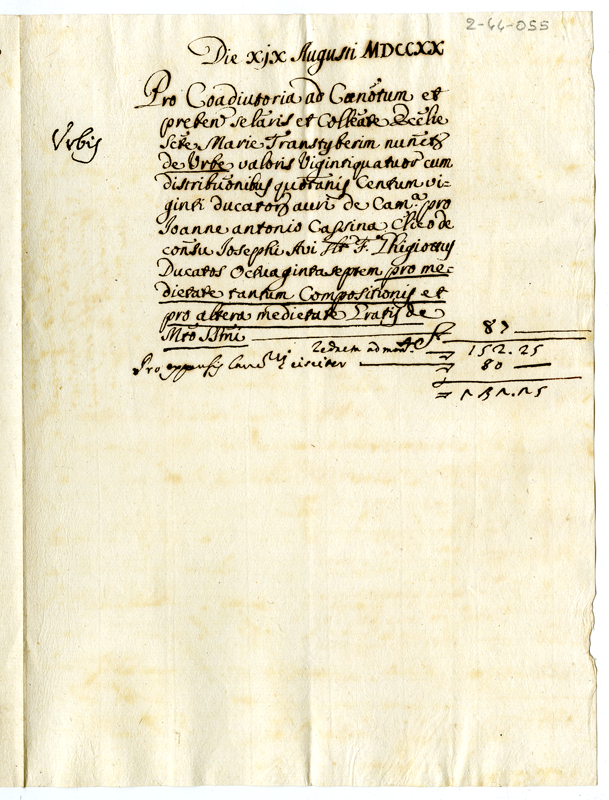 2-44-055
Die XIX Augusti MDCCXX
Urbis
Pro Coadiutoria ad Canōtum et
preben selaris et Colleāte Eccłie
Scte Marie Transtyberim nunctę
de Urbe valoris Vigintiquatuor cum
distribuōnibus quotanis Centum vi-
ginti ducatorę auri de Camª pro
Ioanne antonio Cassina Clico de
consu Iosephi Avi F. Phigiottus
Ducatos Octuagintaseptem pro me-
dietate tantum Compositionis et
pro altera medietate Gratis de
Mto SSmi 87
redtem ad mon 152.25
Pro expensis 80